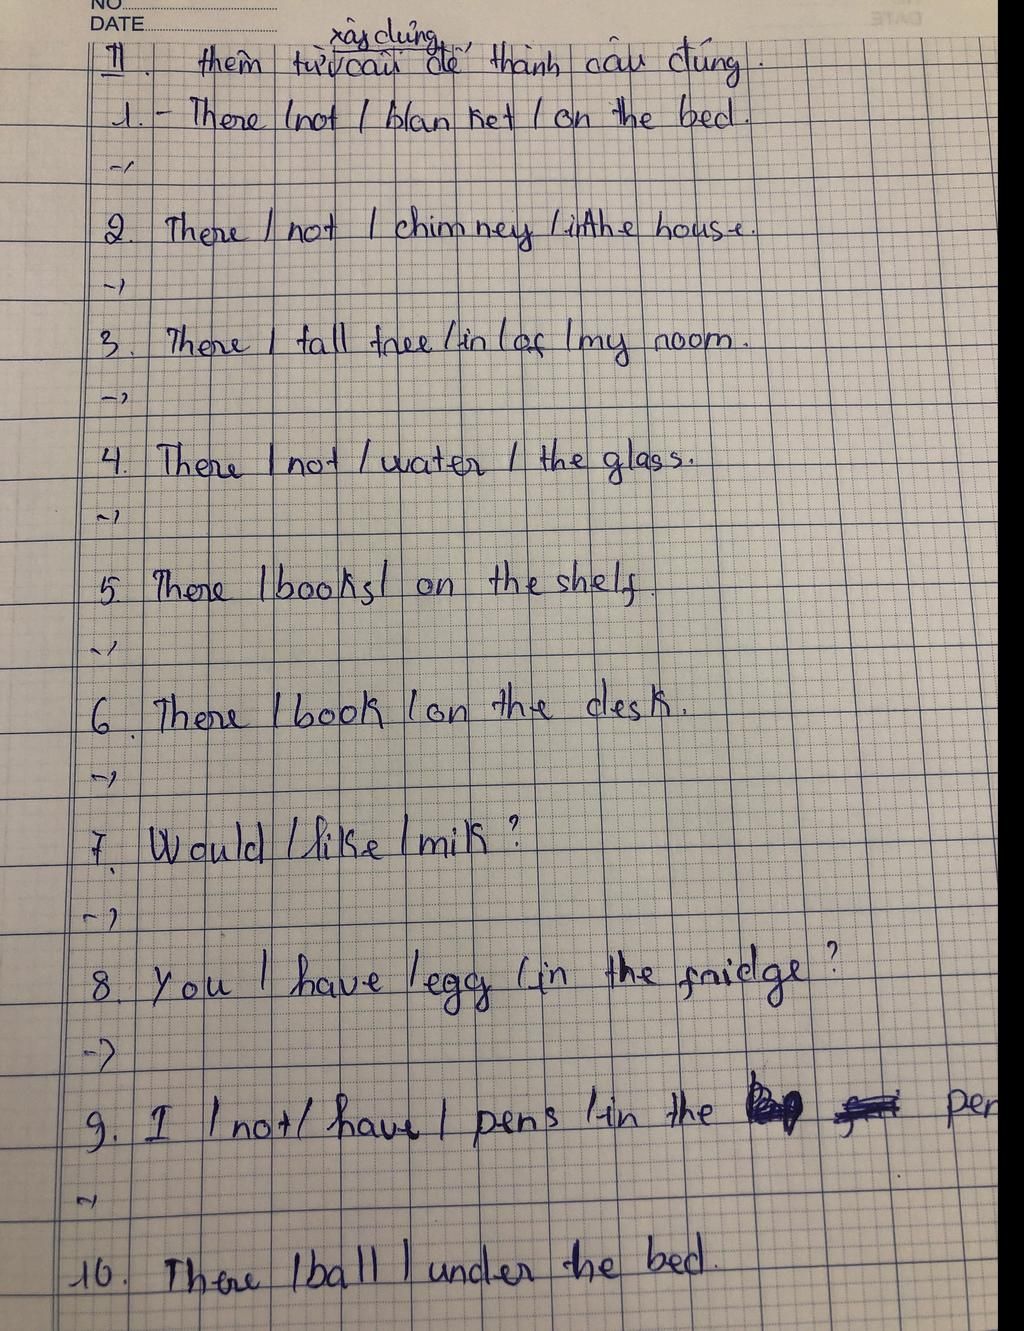 NO
DATE
xây dựng
II. thêm từ, câu để thành câu đúng.
1. - There / not / blanket / on the bed.
->
2. There / not / chimney / in the house.
->
3. There / tall tree / in / of / my room.
->
4. There / not / water / the glass.
->
5. There / books / on the shelf.
->
6. There / book / on the desk.
->
7. Would / like / milk ?
->
8. You / have / egg / in the fridge ?
->
9. I / not / have / pens / in the pen
->
10. There / ball / under the bed.